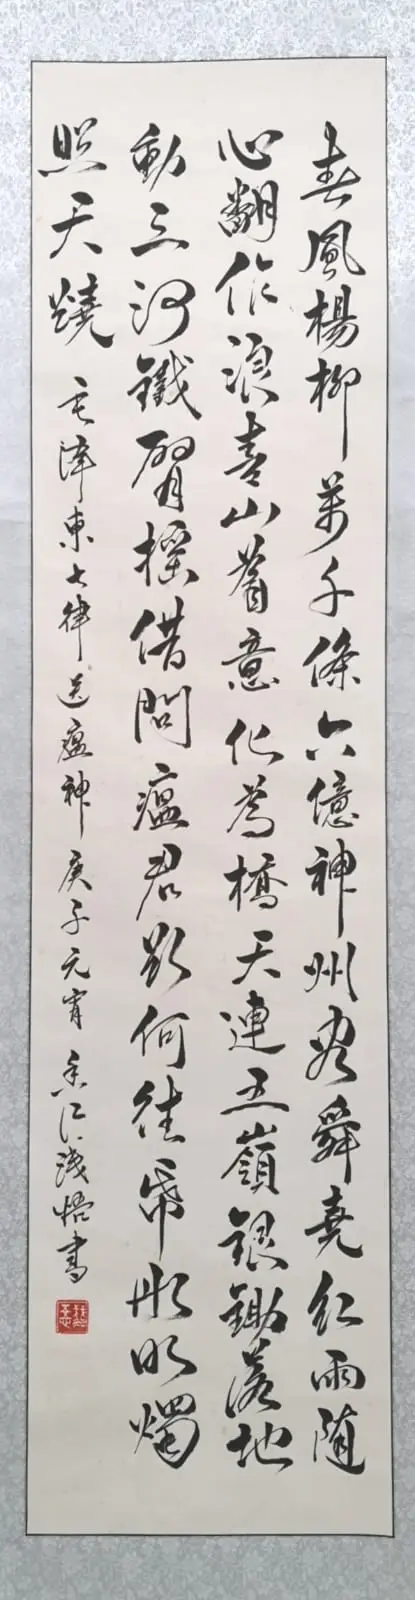 春風楊柳萬千條六億神州盡舜堯紅雨隨
心翻作浪青山着意化為橋天連五嶺銀鋤落地
動三河鐵臂搖借問瘟君欲何往紙船明燭
照天燒
毛澤東七律送瘟神 庚子元宵 淺悟書